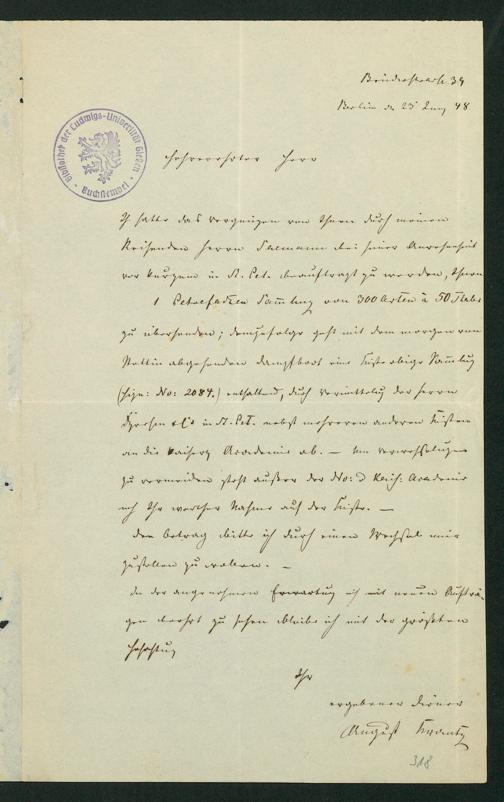 Brüderstraße 39
Berlin d. 25 Juny 48
Bibliothek der Ludwigs-Universität Gießen
Buchstempel
Hochverehrter Herr
Ich hatte das Vergnügen von Ihnen durch meinen
Reisenden Herrn bei seiner Anwesenheit
vor kurzem in St. Pet. beauftragt zu werden, Ihnen
1 Petrefacten Sammlung von 300 Arten à 50 Thaler
zu übersenden; demzufolge geht mit dem morgen von
Stettin abgehenden Dampfboot eine Kiste obige Sammlung
(sign: No: 2084.) enthaltend, durch Vermittelung der Herrn
& Co in St. Pet. nebst mehreren anderen Kisten
an die Kaiserl. Academie ab. — Um Verwechselungen
zu vermeiden steht außer der No: Academie
noch Ihr werther Nahme auf der Kiste. —
Den Betrag bitte ich durch einen Wechsel mir
zustellen zu wollen. —
In der angenehmen Erwartung mich mit neuen Aufträ-
gen beehrt zu sehen bleibe ich mit der größten
Hochachtung
Ihr
ergebener Diener
August Krantz
318